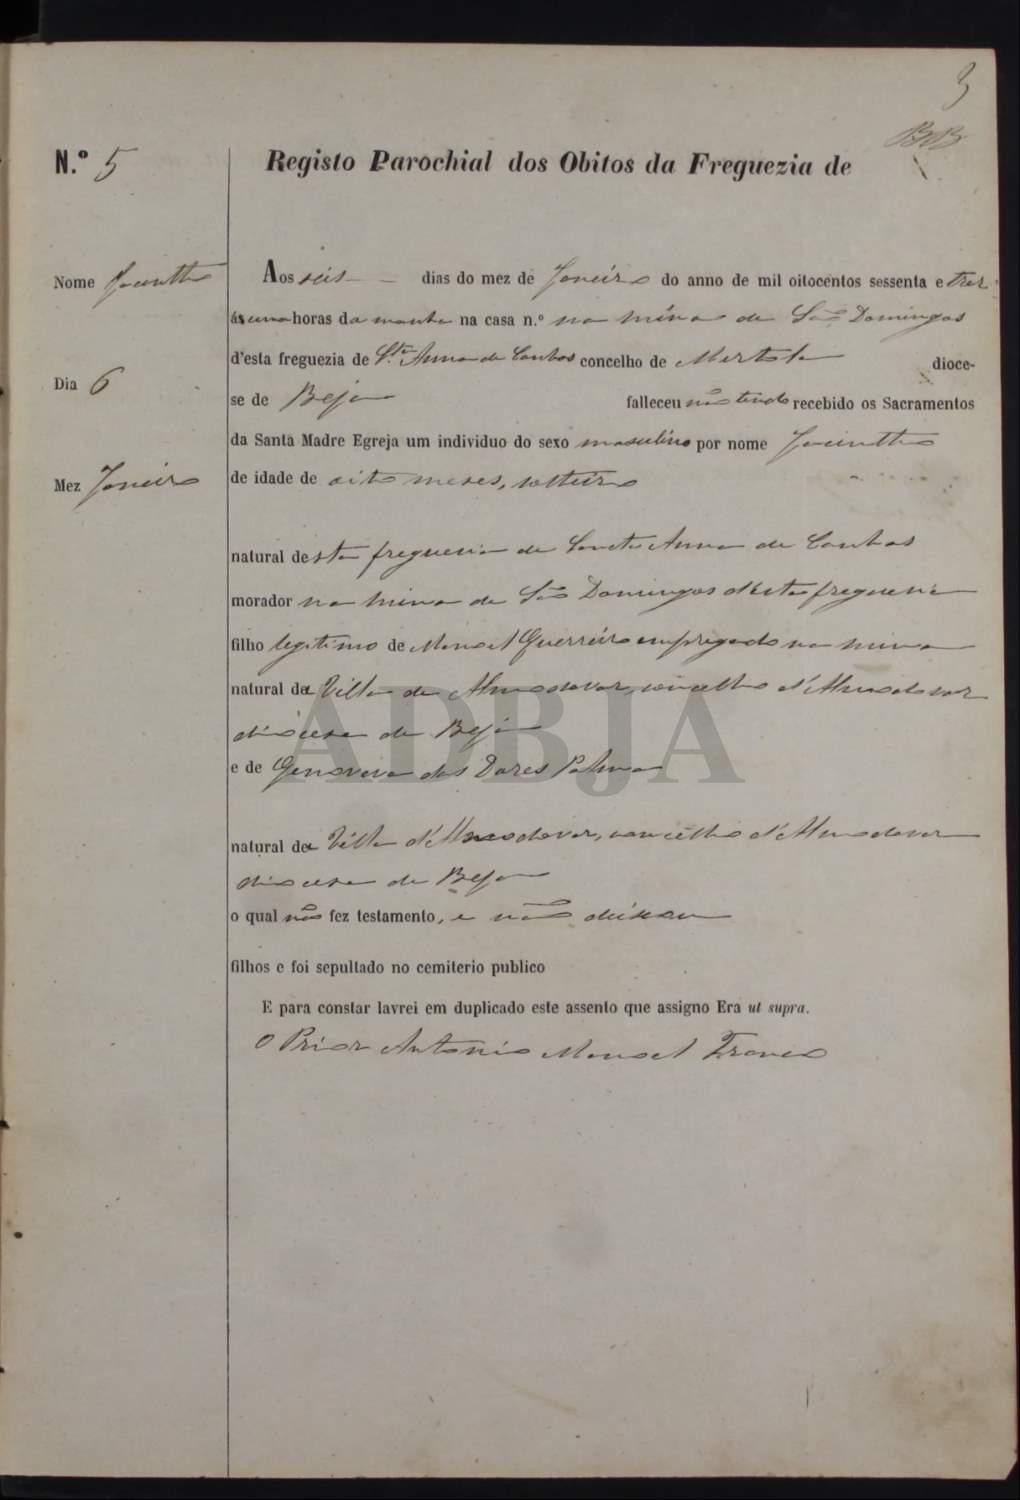 3
N.º 5
Registo Parochial dos Obitos da Freguezia de
Nome Jacintho
Aos seis dias do mez de Janeiro do anno de mil oitocentos sessenta e tres
ás uma horas da manha na casa n.º na mina de São Domingos
d'esta freguezia de Sta Anna de Cambas concelho de Mertola dioce-
Dia 6
se de Beja falleceu não tendo recebido os Sacramentos
da Santa Madre Egreja um individuo do sexo masculino por nome Jacintho
Mez Janeiro
de idade de oito meses, solteiro
natural desta freguesia de Santa Anna de Cambas
morador na mina de São Domingos d'esta freguesia
filho legitimo de Manoel Guerreiro empregado na mina
natural da Villa de Almodovar, concelho d'Almodovar
diocese de Beja
e de Genoveva das Dores Palma
ADBJA
natural da Villa d'Almodovar, concelho d'Almodovar
diocese de Beja
o qual não fez testamento, e não deixou
filhos e foi sepultado no cemiterio publico
E para constar lavrei em duplicado este assento que assigno Era ut supra.
O Prior Antonio Manoel Franco